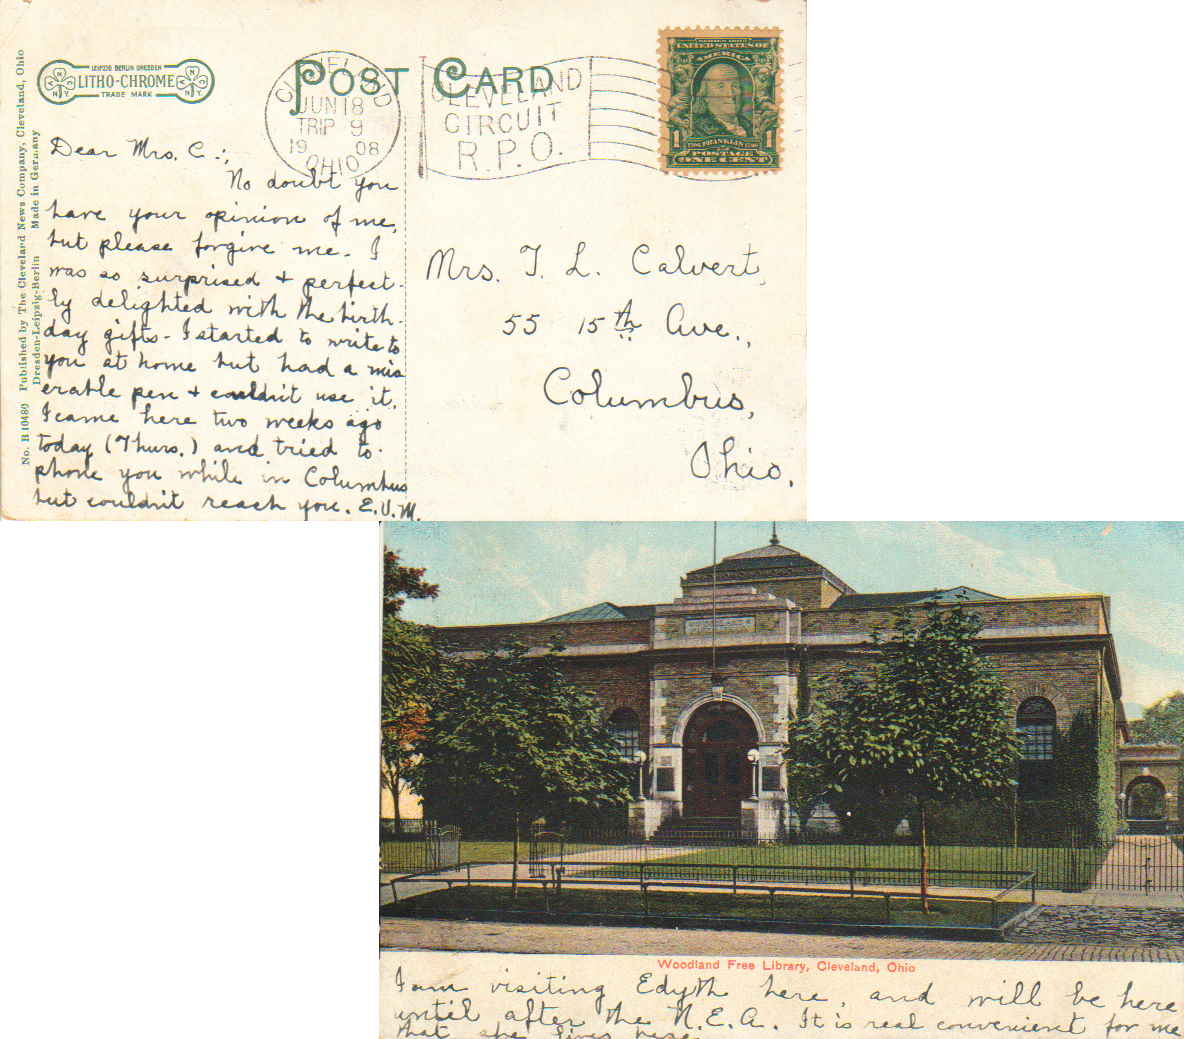 No. B 10480 Published by The Cleveland News Company, Cleveland, Ohio
Dresden-Leipzig-Berlin Made in Germany
LEIPZIG BERLIN DRESDEN
LITHO-CHROME
TRADE MARK
ANC
N.Y.
ANC
N.Y.
POST CARD
CLEVELAND
JUN 18
TRIP 9
19 08
OHIO
CLEVELAND
CIRCUIT
R.P.O.
SERIES 1902
UNITED STATES OF
AMERICA
1 FRANKLIN 1
POSTAGE
ONE CENT
Dear Mrs. C.:,
No doubt you
have your opinion of me,
but please forgive me. I
was so surprised + perfect-
ly delighted with the birth-
day gifts. I started to write to
you at home but had a mis
erable pen + couldn't use it.
I came here two weeks ago
today (Thurs.) and tried to
phone you while in Columbus
but couldn't reach you. E.V.M.
Mrs. T. L. Calvert,
55 15th Ave.,
Columbus,
Ohio.
Woodland Free Library, Cleveland, Ohio
I am visiting Edyth here, and will be here
until after the N.E.A. It is real convenient for me
that she lives here.